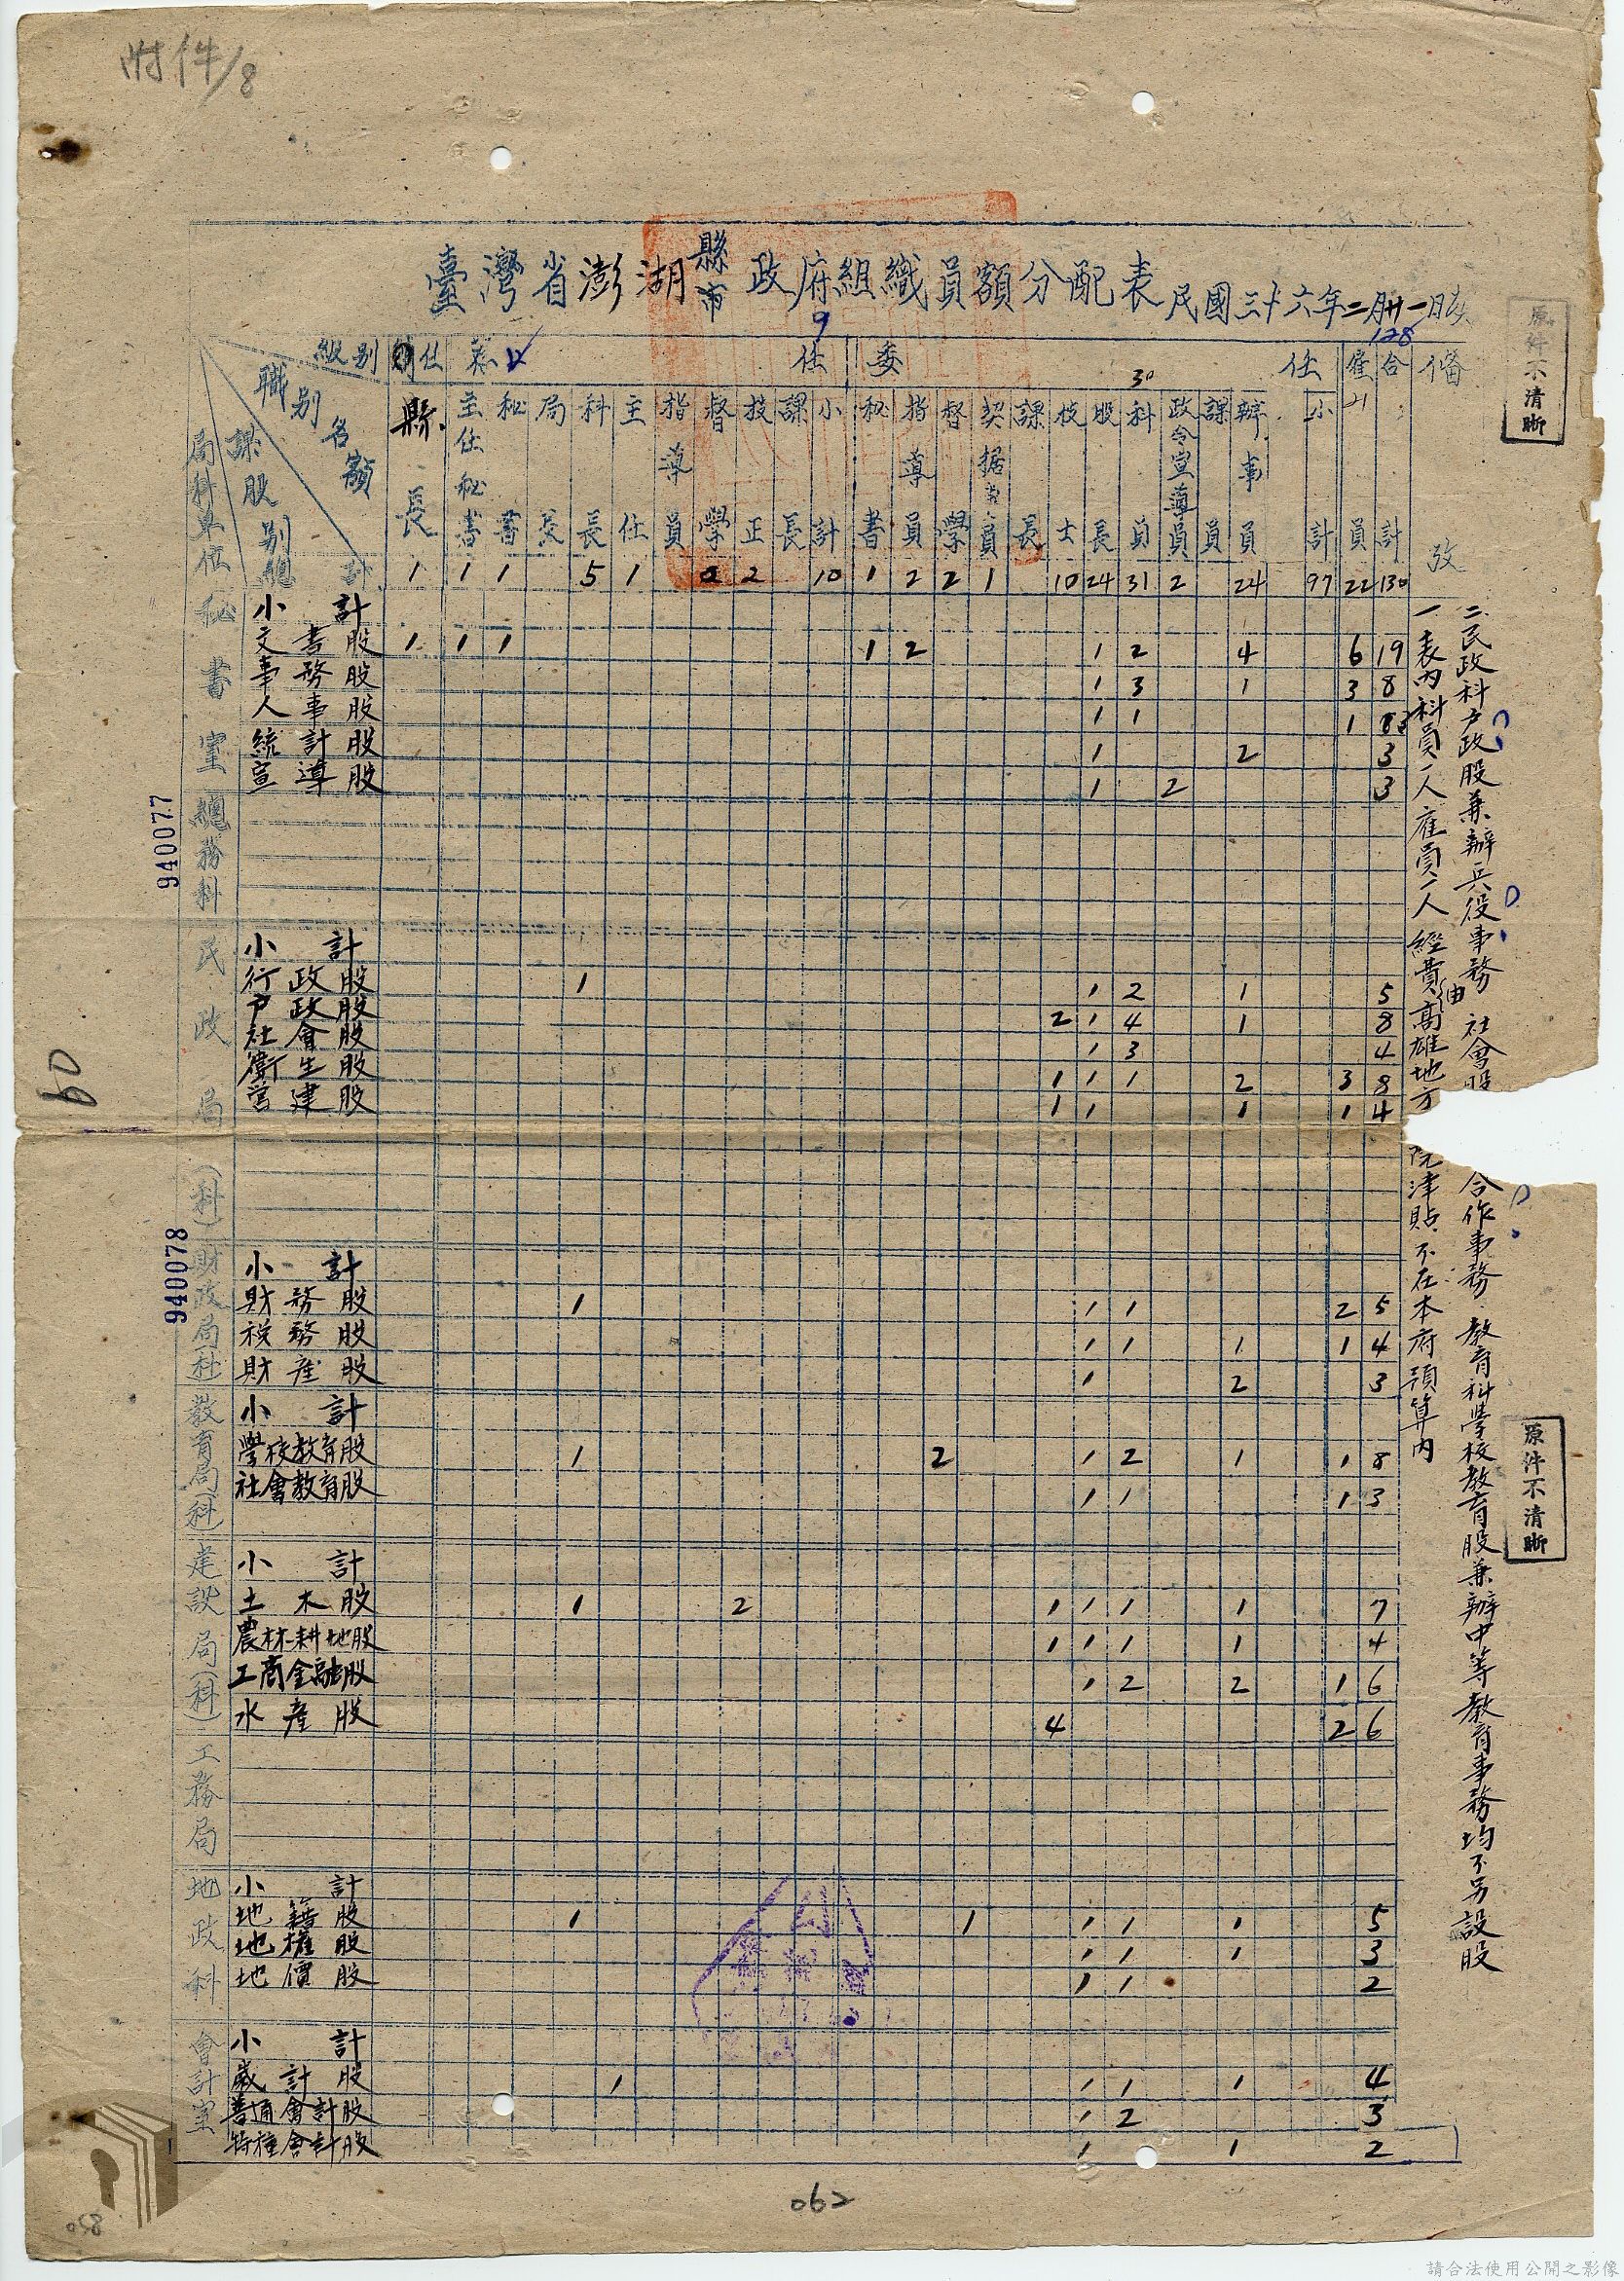 附件/8
臺灣省澎湖縣市政府組織員額分配表 民國三十六年二月廿一日
9
128
級別
職別
名額
課股別
局科單位
總計
簡任
薦任
委任
雇員
合計
備攷
30
21
縣長
主任秘書
秘書
局長
科長
主任
指導員
督學
技正
課長
小計
秘書
指導員
督學
契据員
課長
技士
股長
科員
政令宣導員
課員
辦事員
小計
1 1 1 5 1 2 10 1 2 2 1 10 24 31 2 24 97 22 130
秘書室
小計
文書股 1 1 1 1 2 1 2 4 6 19
事務股 1 3 1 3 8
人事股 1 1 1 3
統計股 1 2 3
宣導股 1 2 3
總務科
民政局(科)
小計
行政股 1 1 2 1 5
戶政股 2 1 4 1 8
社會股 1 3 4
衛生股 1 1 1 2 3 8
營建股 1 1 1 1 4
財政局(科)
小計
財務股 1 1 1 2 5
稅務股 1 1 1 1 4
財產股 1 2 3
教育局(科)
小計
學校教育股 1 2 1 2 1 1 8
社會教育股 1 1 1 3
建設局(科)
小計
土木股 1 2 1 1 1 1 7
農林耕地股 1 1 1 1 4
工商金融股 1 2 2 1 6
水產股 4 2 6
工務局
地政科
小計
地籍股 1 1 1 1 1 5
地權股 1 1 1 3
地價股 1 1 2
會計室
小計
歲計股 1 1 1 1 4
普通會計股 1 2 3
特種會計股 1 1 2
一表內科員一人雇員一人經費由高雄地方院津貼不在本府預算內
二民政科戶政股兼辦兵役事務 社會股合作事務 教育科學校教育股兼辦中等教育事務均不另設股
原件不清晰
原件不清晰
940077
940078
60
062
058
請合法使用公開之影像